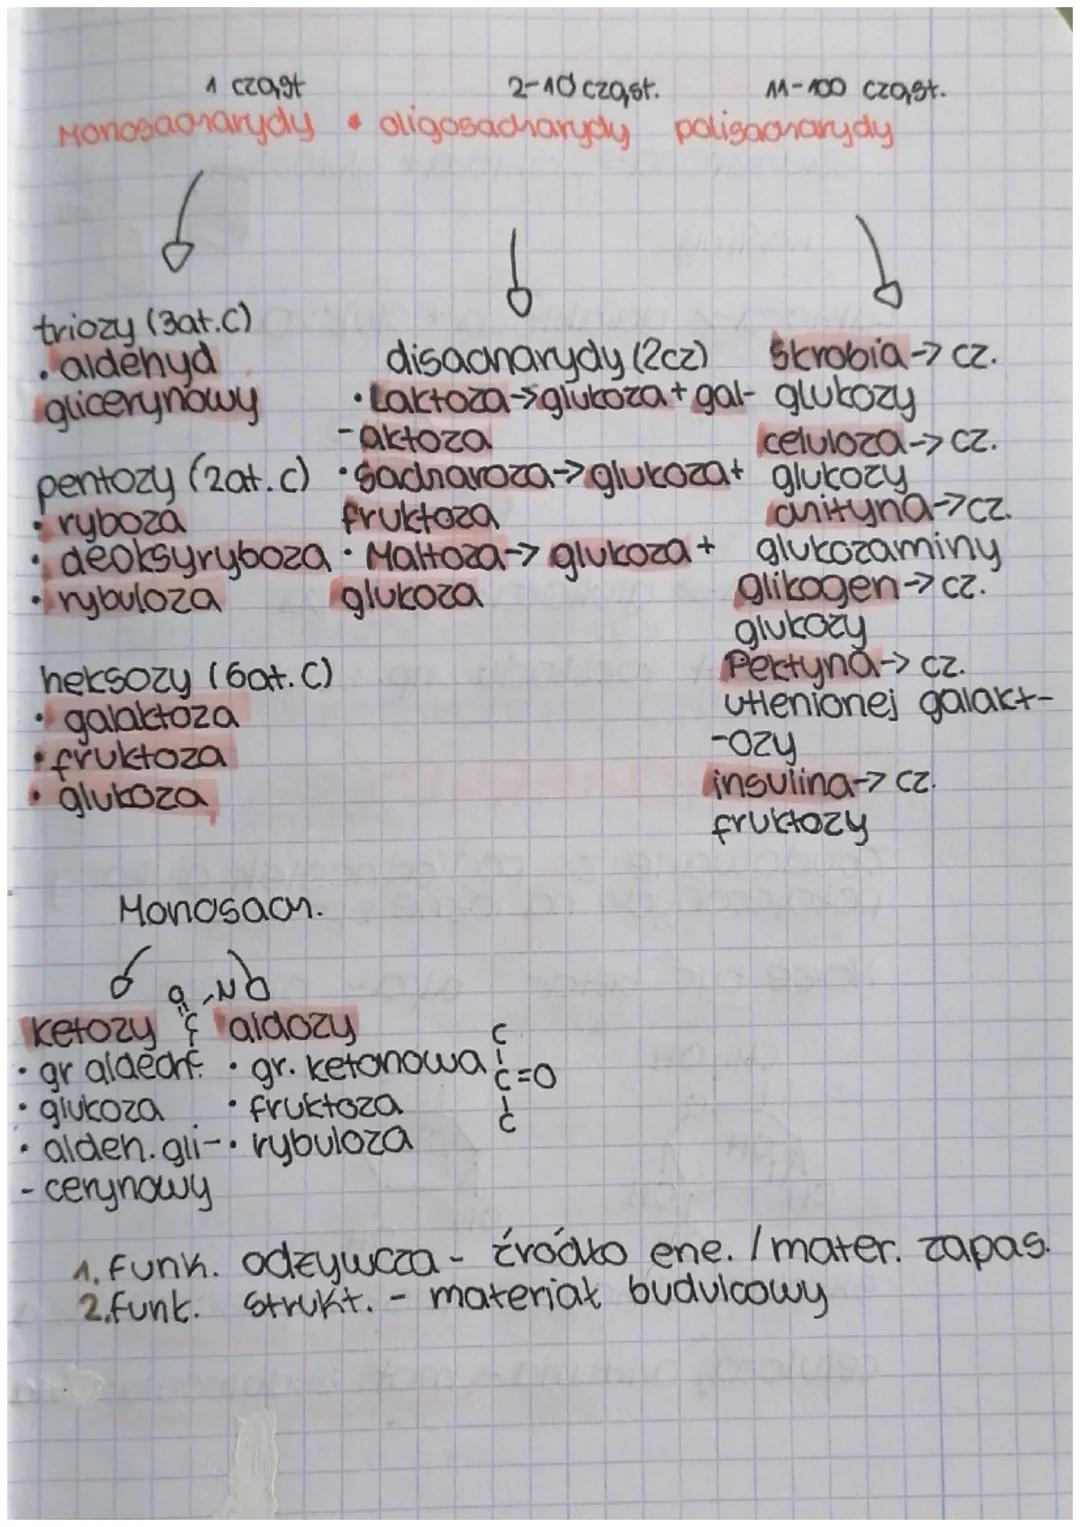 1 cząst
2-10 cząst.
11-100 cząst.
Monosacharydy • oligosacharydy polisacharydy
triozy (3at.C)
• aldehyd
glicerynowy
pentozy (2at.c)
• ryboza
• deoksyryboza
• rybuloza
heksozy (6at.C)
• galaktoza
• fruktoza
• glukoza
disacharydy (2cz)
• Laktoza→glukoza + gal-
-aktoza
• Sacharoza→glukoza+
fruktoza
• Maltoza→ glukoza +
glukoza
Skrobia→ cz.
glukozy
celuloza→ cz.
glukozy
chityna→cz.
glukozaminy
glikogen→ cz.
glukozy
Pektyna→ cz.
utlenionej galakt-
-ozy
insulina→ cz.
fruktozy
Monosach.
ketozy
• gr aldechf.
• glukoza
• aldeh. gli-
- cerynowy
O
H
C
aldozy
• gr. ketonowa
• fruktoza
• rybuloza
C
C=O
C
1. funk. odżywcza - źródło ene. / mater. zapas.
2. funk. strukt. - materiał budulcowy